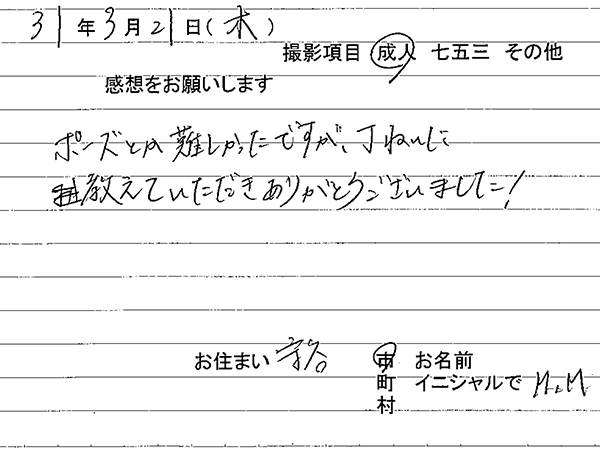 31年3月21日(木)
撮影項目 成人 七五三 その他
感想をお願いします
ポーズとか難しかったですが、丁ねいに
教えていただきありがとうございました!
お住まい 守谷 市 お名前
町 イニシャルで M.M
村